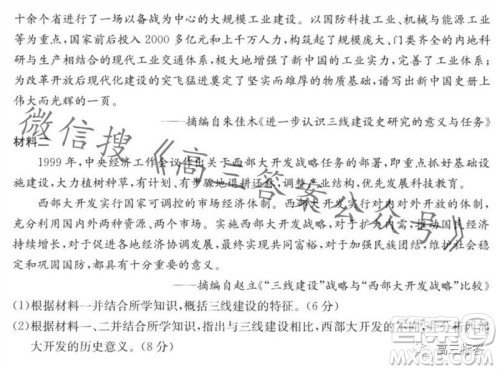 十余个省进行了一场以备战为中心的大规模工业建设。以国防科技工业、机械与能源工业
等为重点,国家前后投入 2000 多亿元和上千万人力,构筑起了规模庞大、门类齐全的内地科
研与生产相结合的现代工业交通体系,极大地增强了新中国的工业实力,完善了工业体系;
为改革开放后现代化建设的突飞猛进奠定了坚实而雄厚的物质基础,谱写出新中国史册上
伟大而光辉的一页。
——摘编自朱佳木《进一步认识三线建设史研究的意义与任务》
材料二
1999 年,中央经济工作会议作出关于西部大开发战略任务的部署,即重点抓好基础设
施建设,大力植树种草,有计划、有步骤地退耕还林,调整产业结构,优先发展科技教育。
西部大开发实行国家可调控的市场经济体制。西部大开发实行对内对外开放的体制,
充分利用国内外两种资源、两个市场。实施西部大开发,对于扩大内需,推动国民经济
持续增长,对于促进各地区经济协调发展,最终实现共同富裕,对于加强民族团结、维护社会稳定
和巩固国防,都具有十分重要的意义。
——摘编自赵立《“三线建设”战略与“西部大开发战略”比较》
(1)根据材料一并结合所学知识,概括三线建设的特征。(6 分)
(2)根据材料一、二并结合所学知识,指出与三线建设相比,西部大开发的不同,并分析西部
大开发的历史意义。(8 分)
微信搜《高三答案公众号》
高三标答